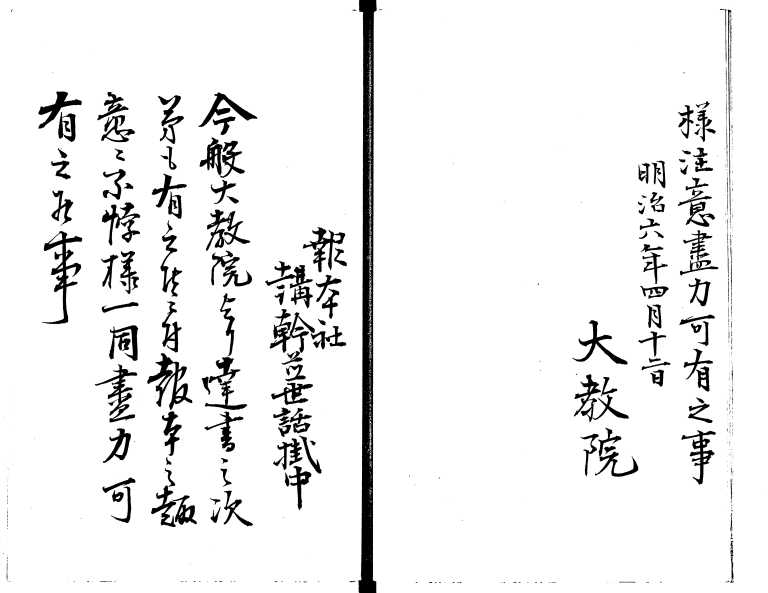 様注意盡力可有之事
明治六年四月十二日
大教院
報本社
講幹並世話掛中
今般大教院ゟ達書之次
第も有之候ニ付報本之趣
意ニ不悖様一同盡力可
有之候事